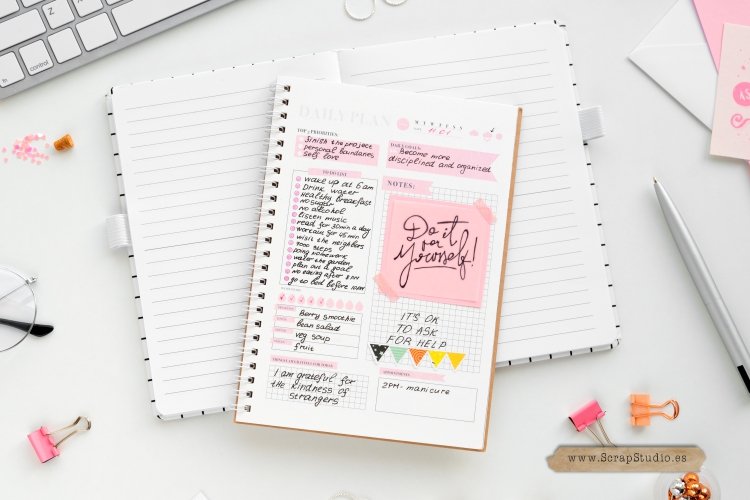 fn
DAILY PLAN
M T W T F S S
11.01
TOP 3 PRIORITIES:
Finish the project
personal boundaries
self love
DAILY GOALS:
Become more
disciplined and organized
TO DO LIST
wake up at 6 am
Drink water
Healthy breakfast
no sugar
no alcohol
listen music
read for 30min a day
workout for 45 min
visit the neighbors
7000 steps
doing homework
water the garden
plan out a goal
no eating after 8 PM
go to bed before 10PM
NOTES:
Do it
for
Yourself!
IT'S OK
TO ASK
FOR HELP
Berry smoothie
bean salad
veg soup
fruit
I am grateful for
the kindness of
strangers
2PM- manicure
www.ScrapStudio.es